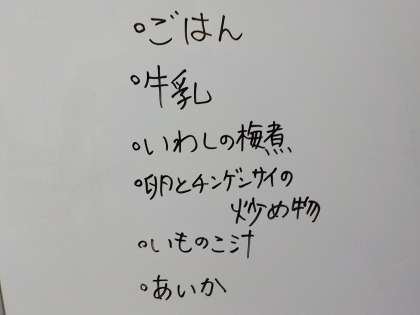 ○ごはん
○牛乳
○いわしの梅煮
○卵とチンゲンサイの
炒め物
○いものこ汁
○あいか